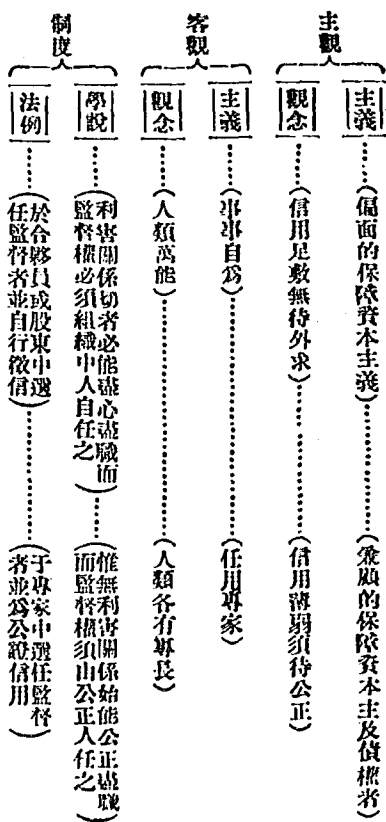 主觀
主義……(偏面的保障資本主義)……(兼顧的保障資本主及債權者)
觀念……(信用足敷無待外求)……(信用薄弱須待公正)
客觀
主義……(事事自爲)……(任用專家)
觀念……(人類萬能)……(人類各有專長)
制度
學說……(利害關係切者必能盡心盡職而
監督權必須組織中人自任之)……(惟無利害關係始能公正盡職
而監督權須由公正人任之)
法例……(於合夥員或股東中選
任監督者並自行徵信)……(于專家中選任監督
者並爲公證信用)